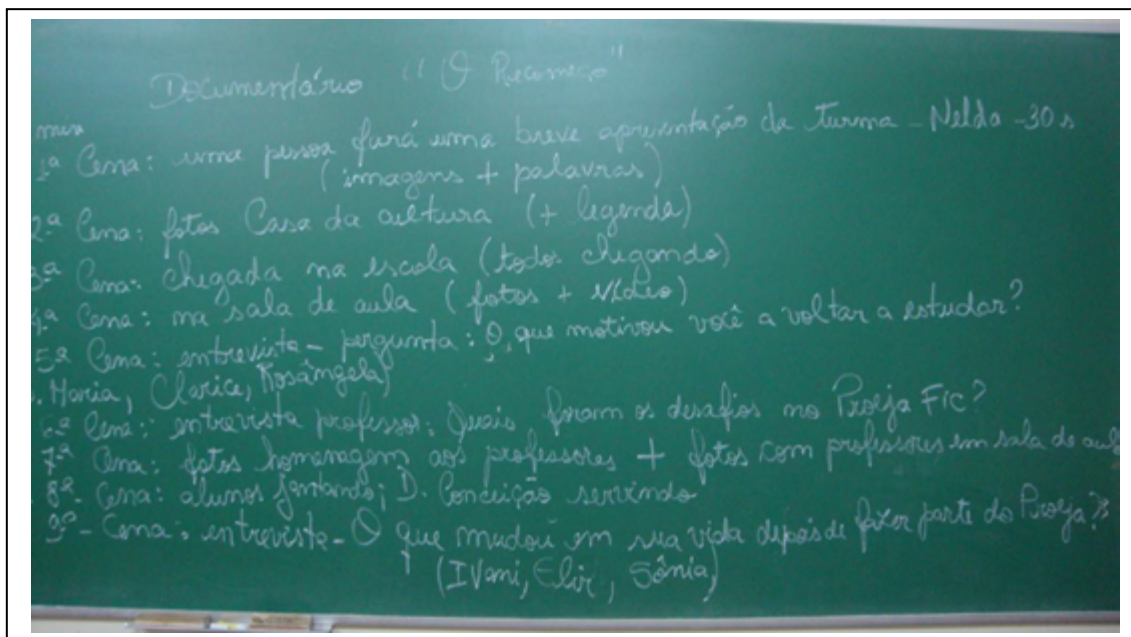 Documentário "O Recomeço"
min
1ª Cena: uma pessoa fará uma breve apresentação da turma - Nelda - 30 s
(imagens + palavras)
2ª Cena: fotos Casa da cultura (+ legenda)
3ª Cena: chegada na escola (todos chegando)
4ª Cena: na sala de aula (fotos + vídeo)
5ª Cena: entrevista - pergunta: O que motivou você a voltar a estudar?
Maria, Clarice, Rosângela)
6ª Cena: entrevista professor: Quais foram os desafios no Proeja FIC?
7ª Cena: fotos homenagem aos professores + fotos com professores em sala de aula
8ª - Cena: alunos jantando; D. Conceição servindo
9ª - Cena: entrevista - O que mudou em sua vida depois de fazer parte do Proeja?
(Ivani, Elir, Sônia)